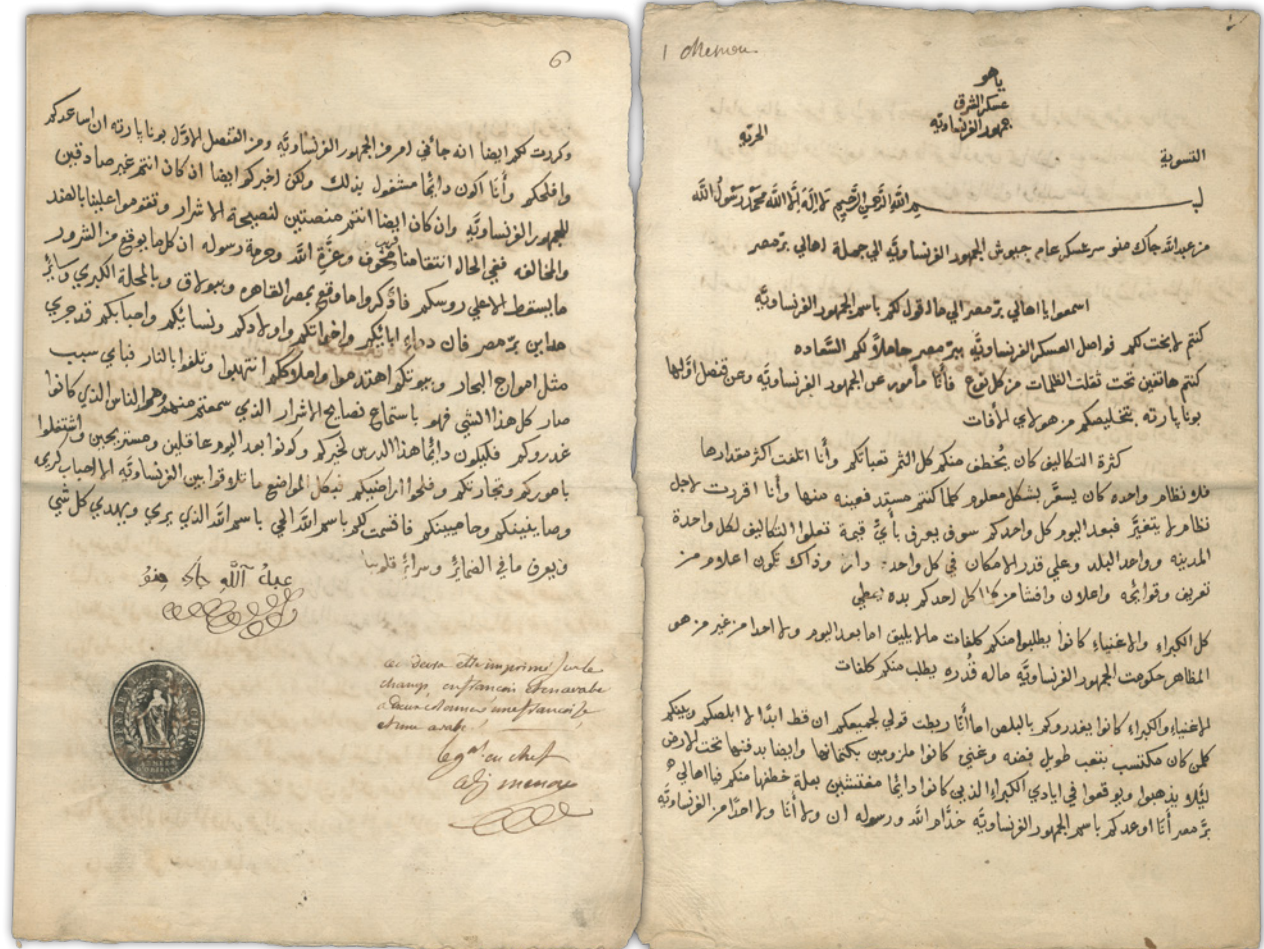 1 Menou.
ياهو
عسكر الشرق
جمهور الفرنساويّه
الحريّه
التسوية
بسم اللّه الرحمن الرحيم لا اله الا اللّه محمد رسول اللّه
من عبد اللّه جاك منو سر عسكر عام جيوش الجمهور الفرنساويّه الي جملة اهالي برّ مصر
اسمعوا يا اهالي برّ مصر الي ما اقول لكم باسم الجمهور الفرنساويّه
كنتم لا بخت لكم فواصل العسكر الفرنساويّه ببرّ مصر حاملاً لكم السّعاده
كنتم تحت ثقلت الظلمات من كل نوع فأنا مأمور عن الجمهور الفرنساويّه وعن قنصل اوّلها
بونا پارته بتخليصكم من هولاي الافات
كثرة التكاليف كان يُخطف منكم كل الثمر تعباتكم وأنا اتلفت اكثر مقدارها
فلا نظام واحده كان يسعّر بشكل معلوم كلما كنتم منها وأنا اقررت لاجل
نظام لا يتغيّر فبعد اليوم كل واحدكم سوف يعرف بأيّ قيمة التكاليف لكل واحدة
المدينه وواحد البلد وعلي قدر الامكان في كل واحد دار وذاك تكون اعلام من
تعريف وقوائمه واعلان وافشا كل احدكم بده
كل الكبراء والاغنياء كانوا يطلبوا منكم كلفات ما لا يليق اما بعد اليوم ولا احدا من غير من هو
المظاهر حكومت الجمهور الفرنساويّه ماله قدره يطلب منكم كلفات
الاغنياء والكبراء كانوا يغدروكم بالبلص اما أنا ربطت قولي لجميعكم ان قط ابدًا لا ابلصكم وبينكم
كلمن كان مكتسب بتعب طويل فضه وغني كانوا ملزومين بكتمانها وايضا بدفنها تحت الارض
ليلًا يذهبوا ويوقعوا في ايادي الكبراء الذين كانوا دايما مفتشين بعلة خطفها منكم فيا اهالي
برّ مصر أنا اوعدكم باسم الجمهور الفرنساويّه خدّام اللّه ورسوله ان ولا أنا ولا احدًا من الفرنساويّه
6
وكررت لكم ايضا انه جائني امر من الجمهور الفرنساويّه ومن القنصل الاوّل بونا پارته ان اساعدكم
وافلحكم وأنا اكون دايمًا مشغول بذلك ولكن اخبركم ايضا ان كان انتم غير صادقين
للجمهور الفرنساويّه وان كان ايضا انتم منصتين لنصيحة الاشرار وتقوموا علينا بالضد
والمخالفه ففي الحال انتقامنا مخوف وعزّة اللّه وحرمة رسوله ان كل ما يوقع من الشرور
ما يسقط الا علي روسكم فاذكروا ما وقع بمصر القاهره وببولاق وبالمحلة الكبري وسائر
مداين برّ مصر فان دماء ابائكم واخواتكم واولادكم ونسائكم واحبابكم قد جري
مثل امواج البحار وبيوتكم اهتدموا واملاككم انتهبوا وتلفوا بالنار فباي سبب
صار كل هذا الشي فهو باستماع نصايح الاشرار الذي سمعتم منهم وهموا الناس الذي كانوا
غدروكم فليكون دايمًا هذا الدرس لخيركم وكونوا بعد اليوم عاقلين ومستريحين واشتغلوا
باموركم وتجارتكم وفلحوا اراضيكم فبكل المواضع ما تلاقوا بين الفرنساويّه الا احباب كرمه
وصاينينكم وحاميينكم فاقسمت لكم باسم اللّه الحي باسم اللّه الذي يري ويهدي كل شي
ويعرف ما في الضمائر وسرائر قلوبنا
عبد اللّه جاك منو
ceci devra etre imprimé sur le
champ, en francois et en arabe
a deux colonnes une francoise
et une arabe.
le g.al en chef
abd. j. menou